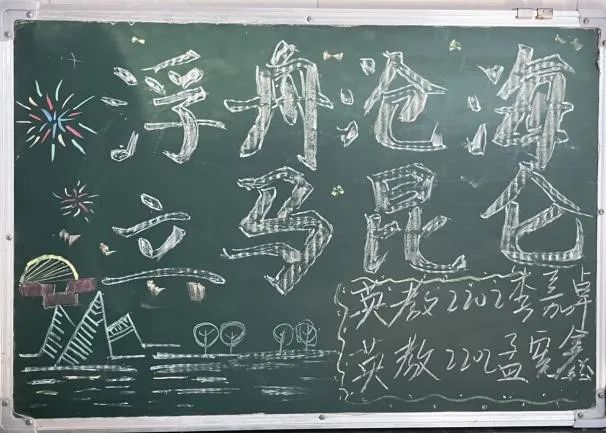 浮舟沧海
立马昆仑
英教2202娄嘉卓
英教2202孟奕鑫